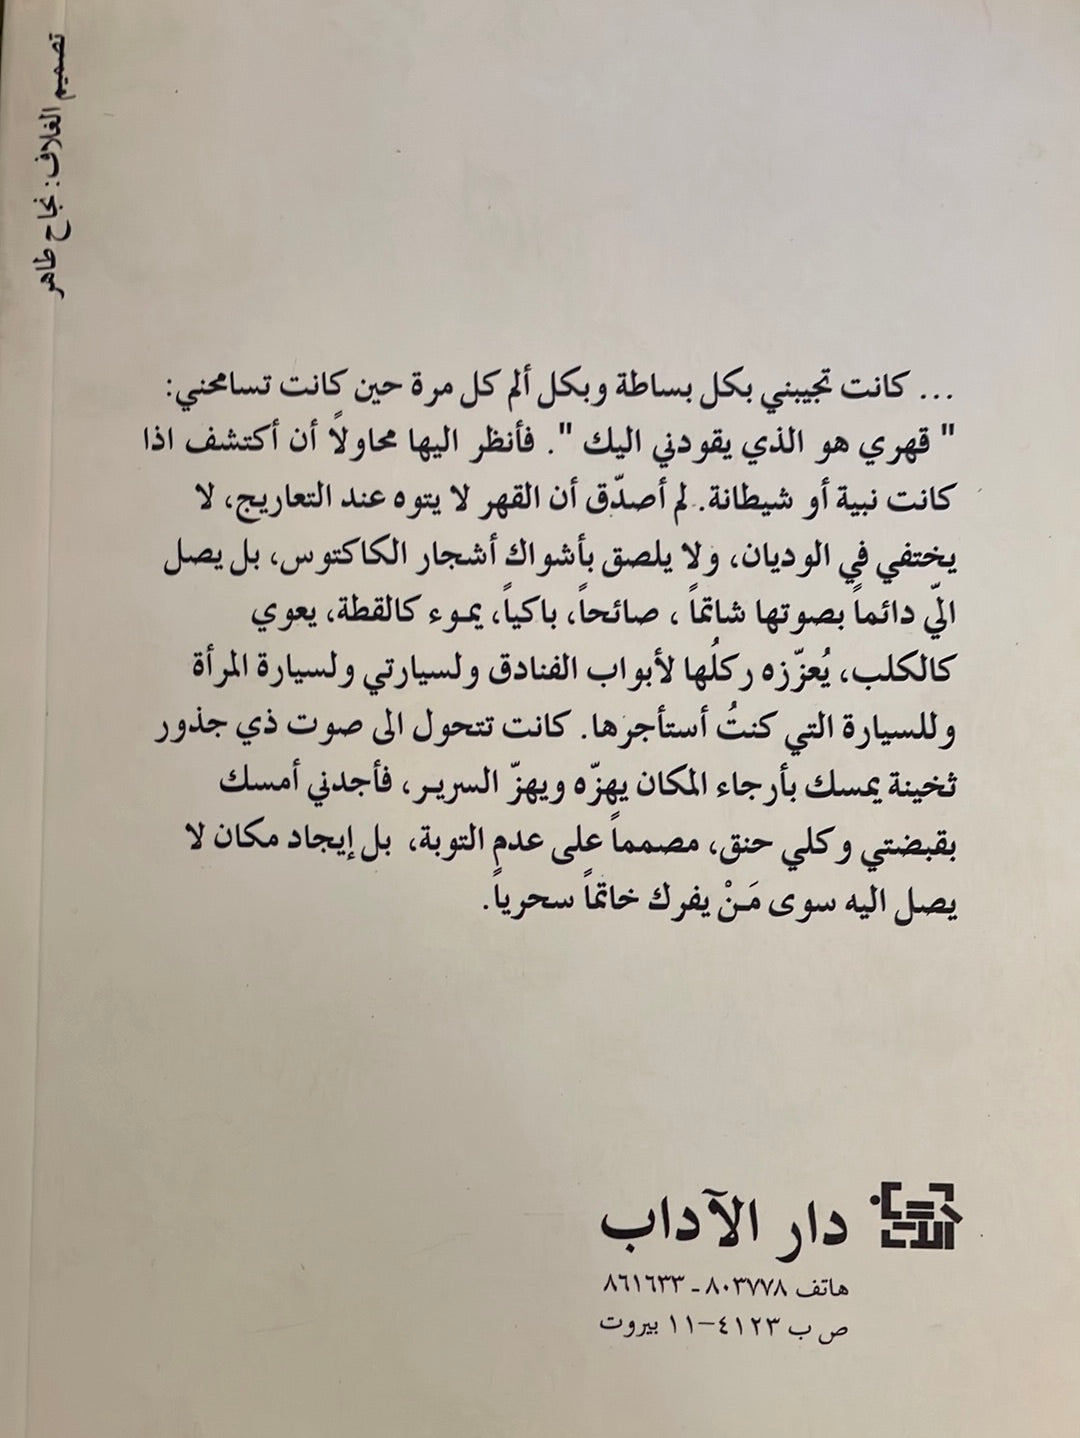 تصميم الغلاف: نجاح طاهر
... كانت تجيبني بكل بساطة وبكل ألم كل مرة حين كانت تسامحني:
" قهري هو الذي يقودني اليك ". فأنظر اليها محاولاً أن أكتشف اذا
كانت نبية أو شيطانة. لم أصدّق أن القهر لا يتوه عند التعاريج، لا
يختفي في الوديان، ولا يلصق بأشواك أشجار الكاكتوس، بل يصل
اليّ دائماً بصوتها شاتماً ، صائحاً، باكياً، يموء كالقطة، يعوي
كالكلب، يُعزّزه ركلُها لأبواب الفنادق ولسيارتي ولسيارة المرأة
وللسيارة التي كنتُ أستأجرها. كانت تتحول الى صوت ذي جذور
ثخينة يمسك بأرجاء المكان يهزّه ويهزّ السرير، فأجدني أمسك
بقبضتي وكلي حنق، مصمماً على عدم التوبة، بل إيجاد مكان لا
يصل اليه سوى مَنْ يفرك خاتماً سحرياً.
دار الآداب
هاتف ٨٠٣٧٧٨ ـ ٨٦١٦٣٣
ص ب ٤١٢٣–١١ بيروت